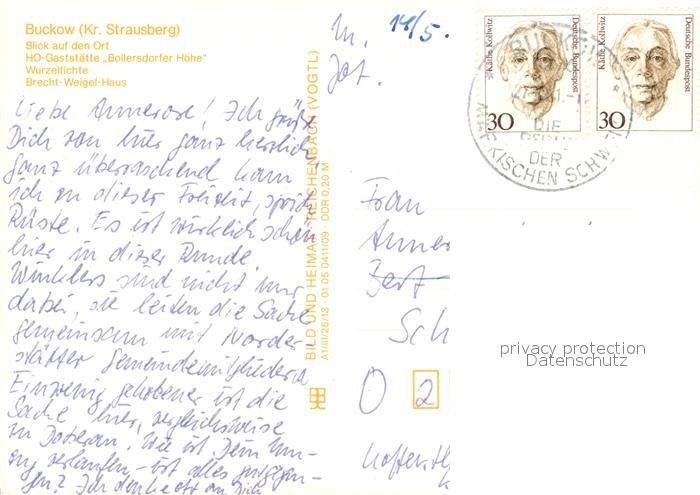 Buckow (Kr. Strausberg)
Blick auf den Ort
HO-Gaststätte „Bollersdorfer Höhe"
Wurzelfichte
Brecht-Weigel-Haus
Liebe Annerose! Ich grüße
Dich von hier ganz herzlich,
ganz überraschend kam
ich zu dieser Freizeit, sprich
Rüste. Es ist wirklich schön
hier in dieser Runde.
Winklers sind nicht nur
dabei, sie leiten die Sache
gemeinsam mit Norder-
stätter Gemeindemitgliedern
Einwenig gehobener ist die
Sache hier, vergleichsweise
zu Dateran. Wie ist Dein Um-
zug verlaufen – ist alles gutgegan-
gen? Ich denke oft an Dich
BILD UND HEIMAT REICHENBACH (VOGTL)
A1/III/26/13 · 01 05 0411/09 · DDR 0,20 M
14/5.
Deutsche Bundespost
Käthe Kollwitz
30
Deutsche Bundespost
Käthe Kollwitz
30
BUCKOW
DIE
DER
MÄRKISCHEN SCHWEIZ
Frau
Anner
Sch
O 2
privacy protection
Datenschutz